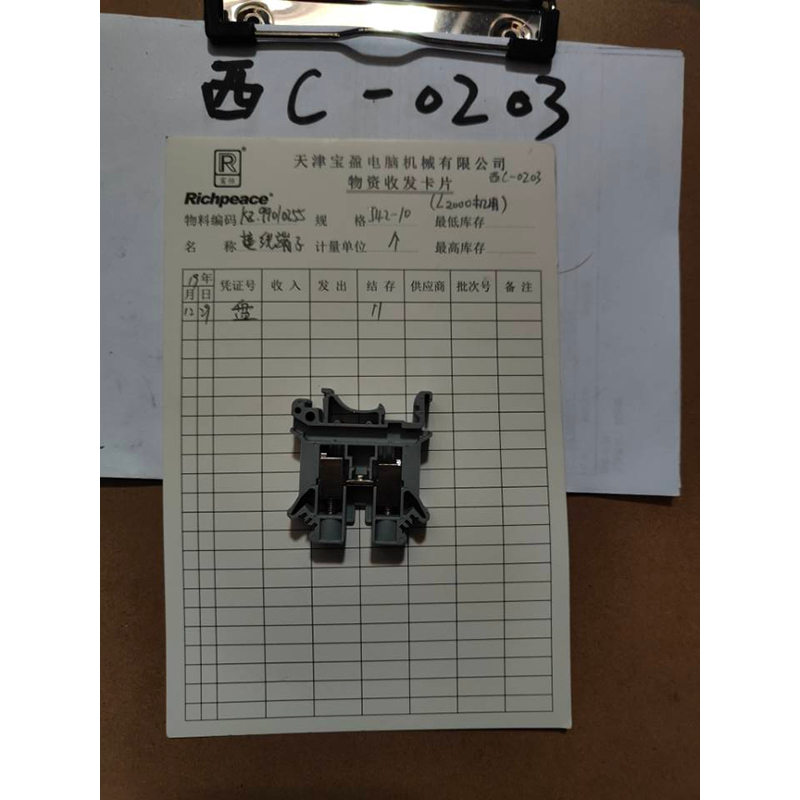 西C-0203
R
Richpeace®
天津宝盈电脑机械有限公司
物资收发卡片 西C-0203
(L2000机用)
物料编码 规格 最低库存
名称 接线端子 计量单位 个 最高库存
19年 凭证号 收入 发出 结存 供应商 批次号 备注
月 日
12 29 盘 11